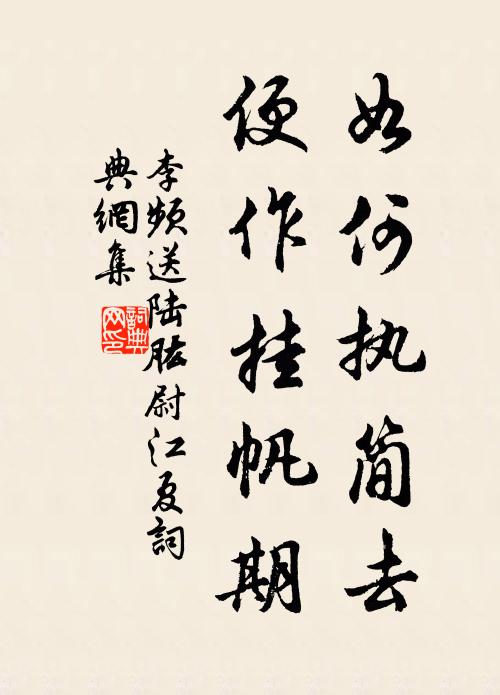 如何执简去
便作挂帆期
李频送陆肱尉江夏詞
典網集
詞典网印